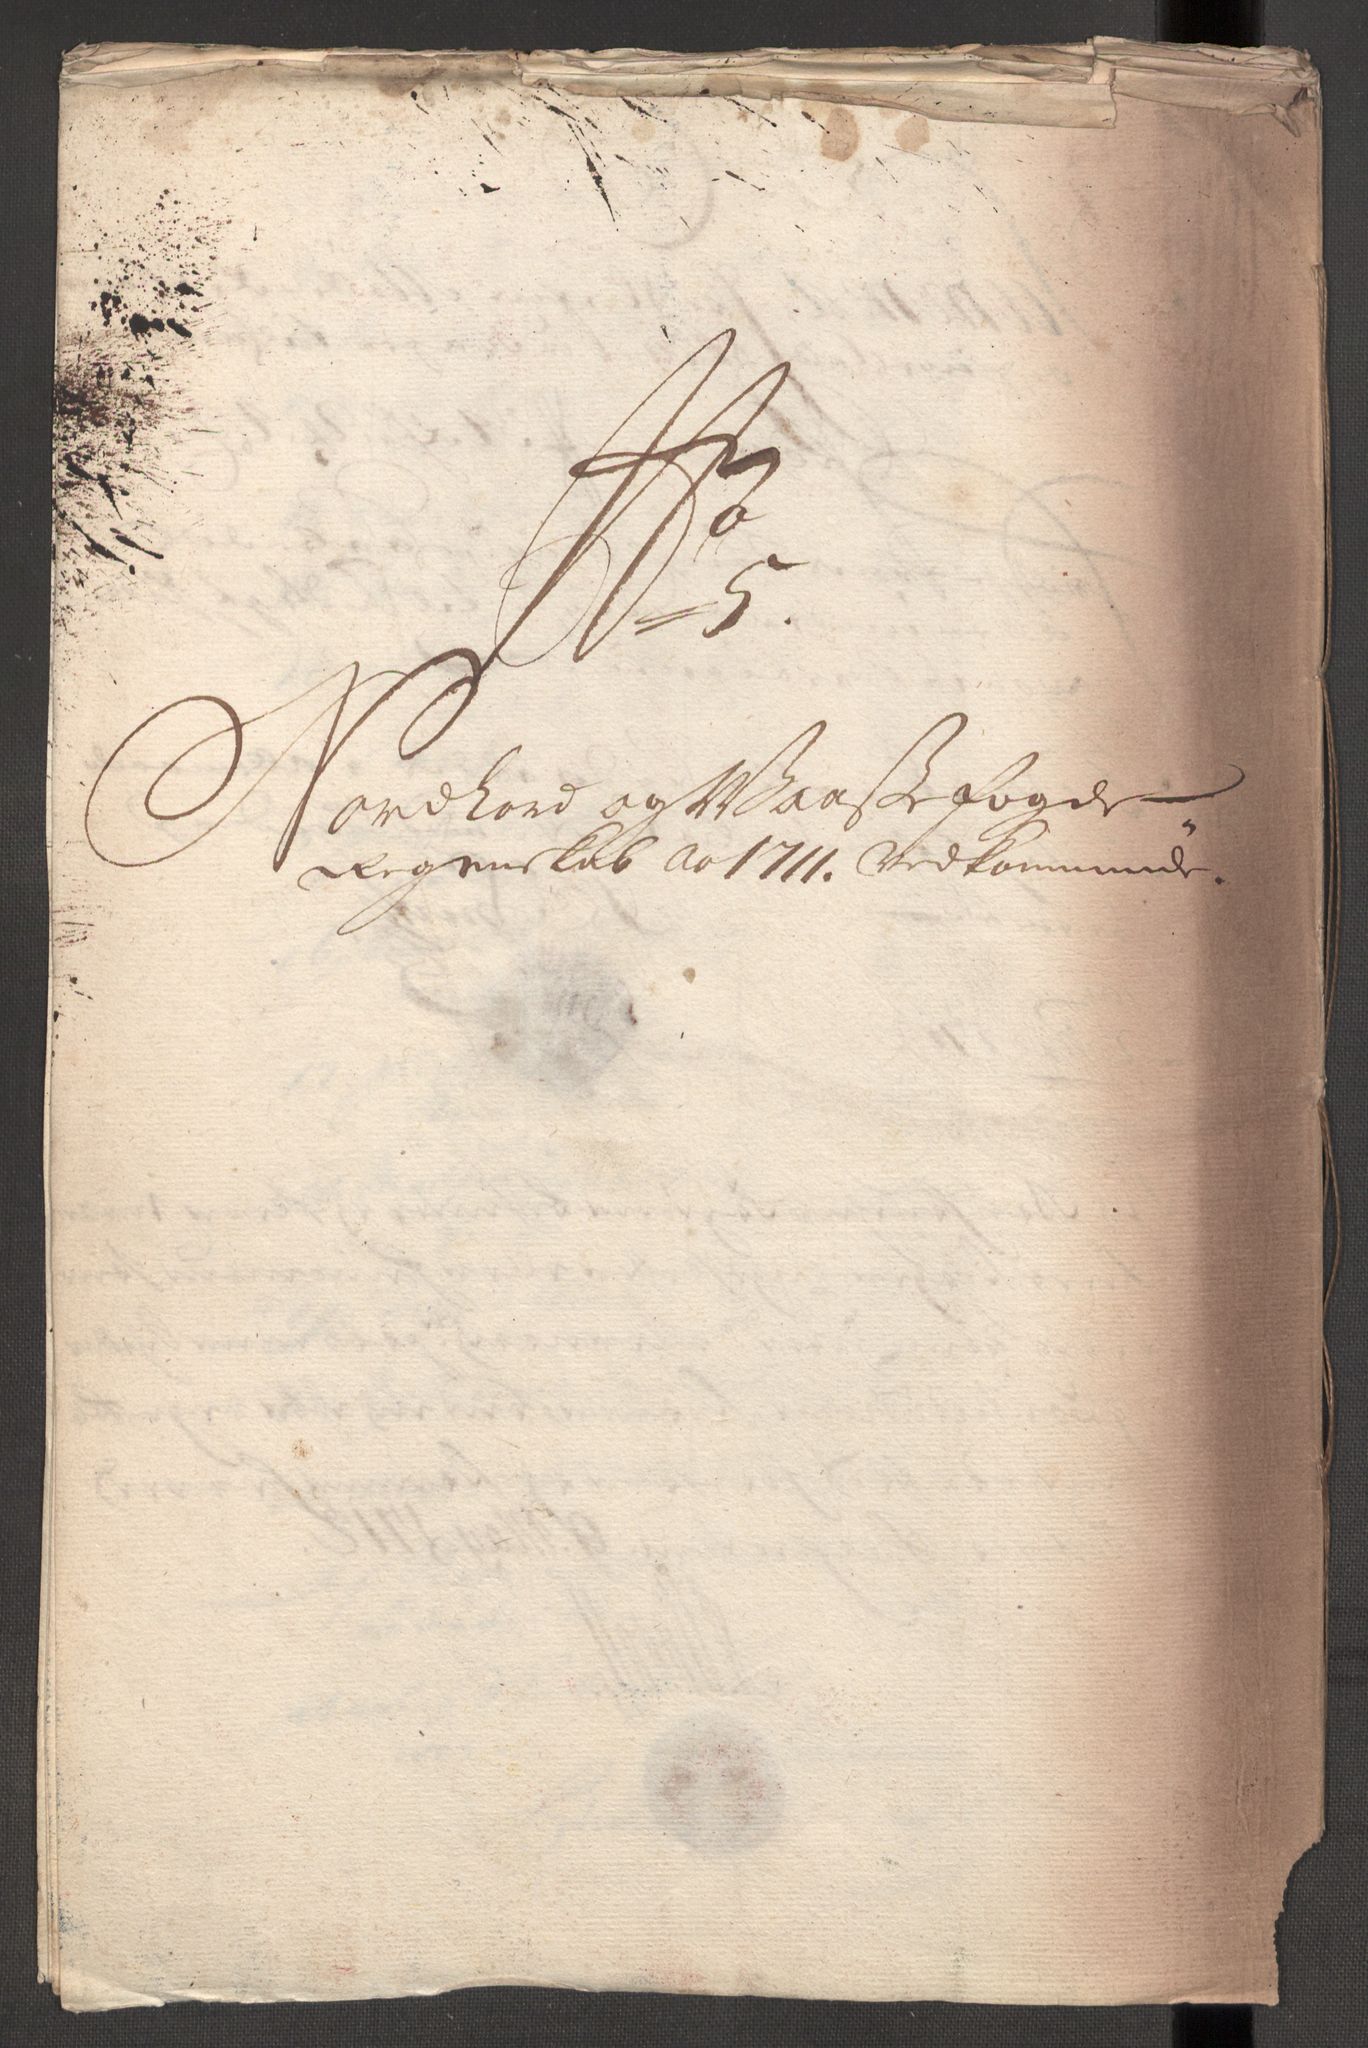 No
5.
Nordhord og Waasse fogde
Regenskab Ao 1711. Vedkommende.